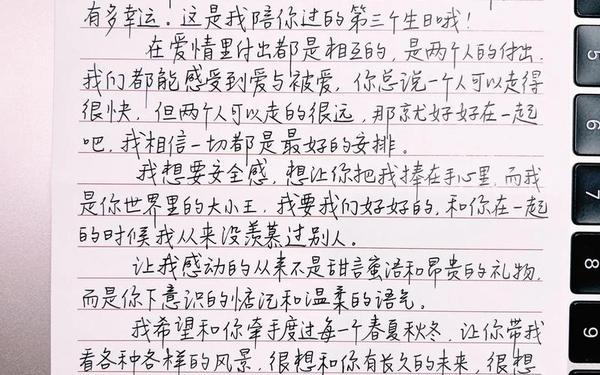 有多幸运。这是我陪你过的第三个生日哦!
在爱情里付出都是相互的,是两个人的付出,
我们都能感受到爱与被爱,你总说一个人可以走得
很快,但两个人可以走的很远,那就好好在一起
吧,我相信一切都是最好的安排。
我想要安全感,想让你把我捧在手心里,而我
是你世界里的大小王,我要我们好好的,和你在一起
的时候我从来没羡慕过别人。
让我感动的从来不是甜言蜜语和昂贵的礼物,
而是你下意识的惦记和温柔的语气。
我希望和你牵手度过每一个春夏秋冬,让你带我
看各种各样的风景,很想和你有长久的未来,很想
5
6
7
8
9